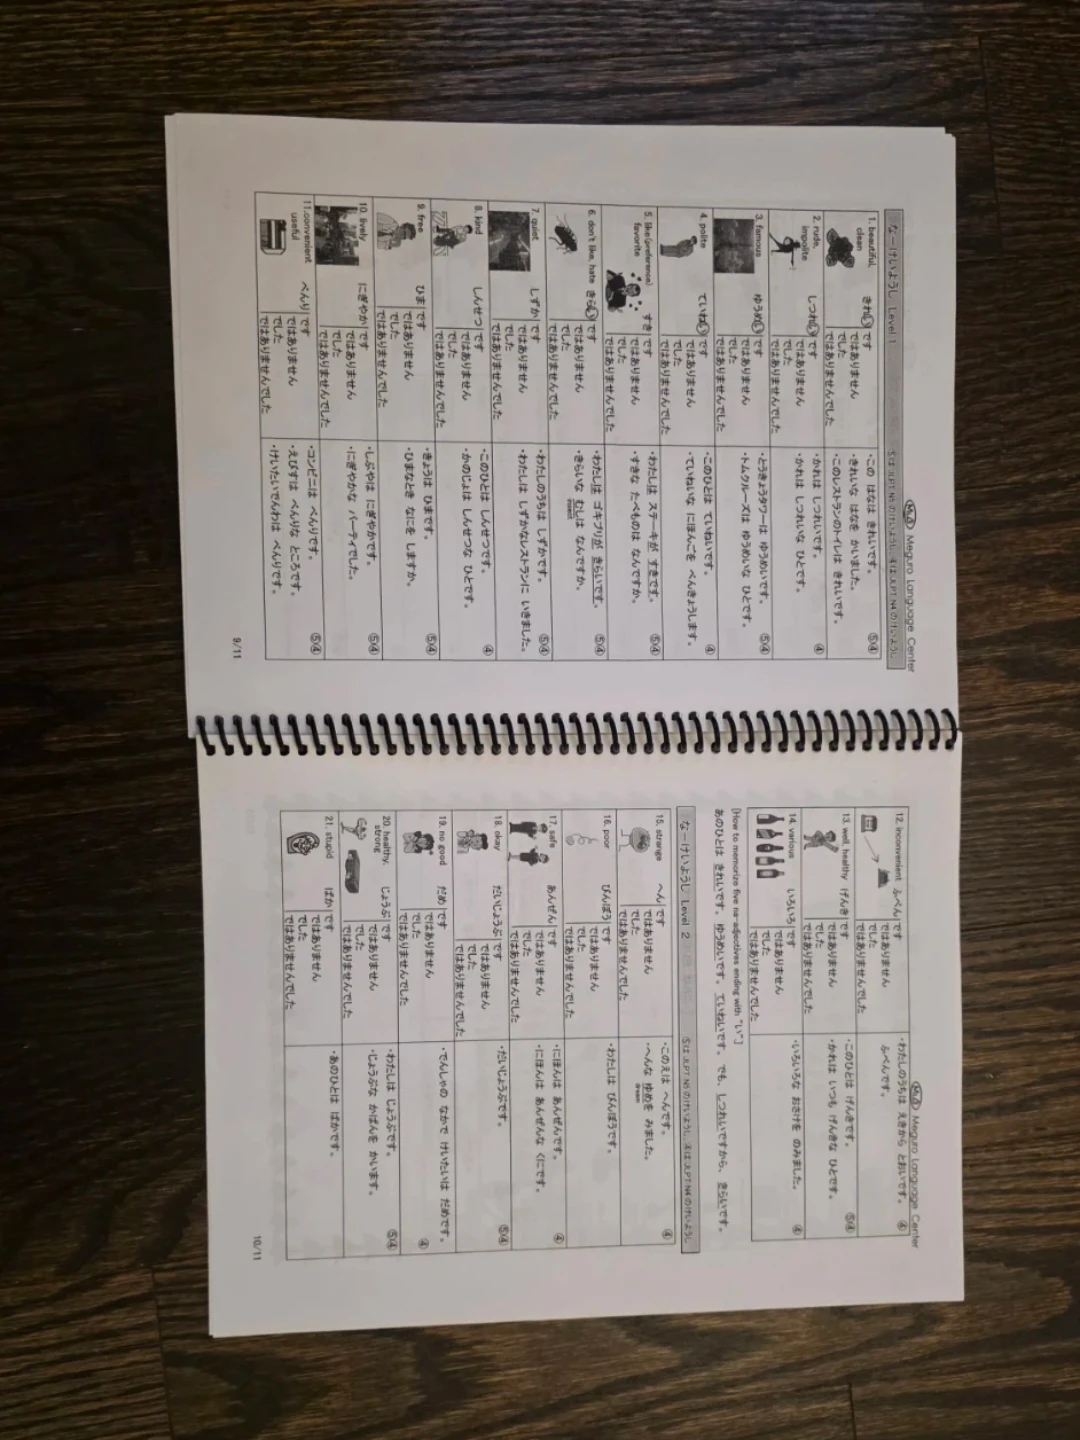 Meguro Language Center
な－けいようし Level 1
⑤は JLPT N5 のけいようし ④は JLPT N4 のけいようし
1. beautiful,
clean
きれい です
ではありません
でした
ではありませんでした
・この はなは きれいです。
・きれいな はなを かいました。
・このレストランのトイレは きれいです。
⑤④
2. rude,
impolite
しつれい です
ではありません
でした
ではありませんでした
・かれは しつれいです。
・かれは しつれいな ひとです。
④
3. famous
ゆうめい です
ではありません
でした
ではありませんでした
・とうきょうタワーは ゆうめいです。
・トムクルーズは ゆうめいな ひとです。
⑤④
4. polite
ていねい です
ではありません
でした
ではありませんでした
・このひとは ていねいです。
・ていねいな にほんごを べんきょうします。
④
5. like(preference)
favorite
すき です
ではありません
でした
ではありませんでした
・わたしは ステーキが すきです。
・すきな たべものは なんですか。
⑤④
6. don't like, hate
きらい です
ではありません
でした
ではありませんでした
・わたしは ゴキブリが きらいです。
・きらいな むしは なんですか。
insect
⑤④
7. quiet
しずか です
ではありません
でした
ではありませんでした
・わたしのうちは しずかです。
・わたしは しずかなレストランに いきました。
⑤④
8. kind
しんせつ です
ではありません
でした
ではありませんでした
・このひとは しんせつです。
・かのじょは しんせつな ひとです。
④
9. free
ひま です
ではありません
でした
ではありませんでした
・きょうは ひまです。
・ひまなとき なにを しますか。
⑤④
10. lively
にぎやか です
ではありません
でした
ではありませんでした
・しぶやは にぎやかです。
・にぎやかな パーティでした。
⑤④
11.convenient
useful
べんり です
ではありません
でした
ではありませんでした
・コンビニは べんりです。
・えびすは べんりな ところです。
・けいたいでんわは べんりです。
⑤④
9/11
Meguro Language Center
12. inconvenient
ふべん です
ではありません
でした
ではありませんでした
・わたしのうちは えきから とおいです。
ふべんです。
④
13. well, healthy
げんき です
ではありません
でした
ではありませんでした
・このひとは げんきです。
・かれは いつも げんきな ひとです。
⑤④
14. various
いろいろ です
ではありません
でした
ではありませんでした
・いろいろな おさけを のみました。
④
[How to memorize five na-adjectives ending with "い"]
あのひとは きれいです。ゆうめいです。ていねいです。でも、しつれいですから、きらいです。
な－けいようし Level 2
⑤は JLPT N5 のけいようし ④は JLPT N4 のけいようし
15. strange
へん です
ではありません
でした
ではありませんでした
・このえは へんです。
・へんな ゆめを みました。
dream
④
16. poor
びんぼう です
ではありません
でした
ではありませんでした
・わたしは びんぼうです。
17. safe
あんぜん です
ではありません
でした
ではありませんでした
・にほんは あんぜんです。
・にほんは あんぜんな くにです。
④
18. okay
だいじょうぶ です
ではありません
でした
ではありませんでした
・だいじょうぶです。
⑤④
19. no good
だめ です
ではありません
でした
ではありませんでした
・でんしゃの なかで けいたいは だめです。
④
20. healthy,
strong
じょうぶ です
ではありません
でした
ではありませんでした
・わたしは じょうぶです。
・じょうぶな かばんを かいます。
⑤④
21. stupid
ばか です
ではありません
でした
ではありませんでした
・あのひとは ばかです。
10/11